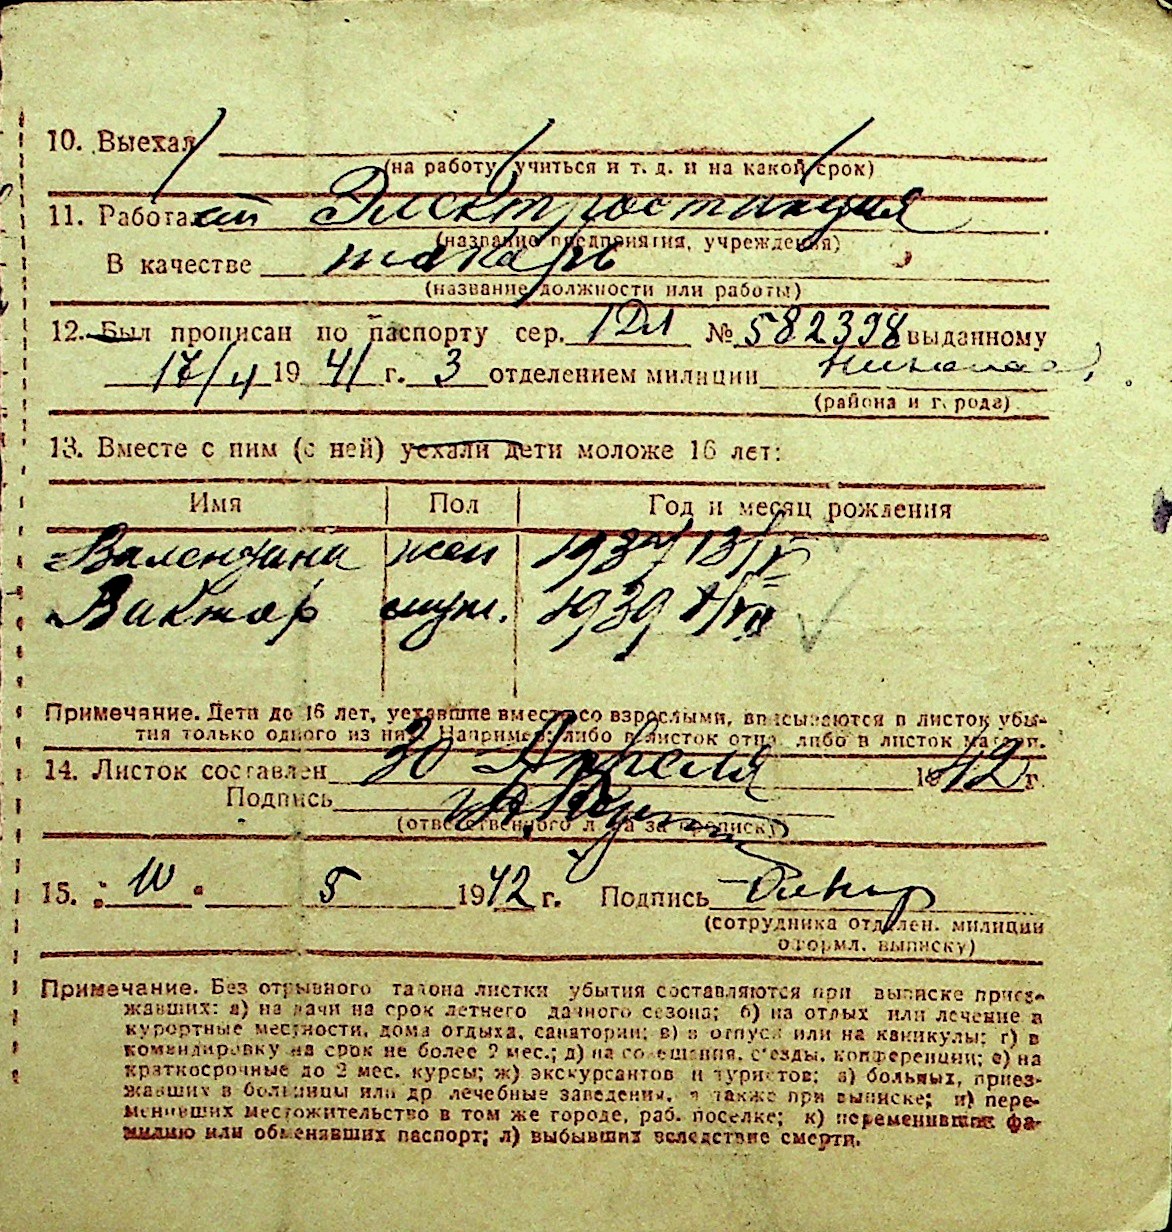 10. Выехал
(на работу, учиться и т. д. и на какой срок)
11. Работает Электростанция
(название предприятия, учреждения)
В качестве токарь
(название должности или работы)
12. Был прописан по паспорту сер. № 582398 выданному
17/ 1941 г. 3 отделением милиции
(района и города)
13. Вместе с ним (с ней) уехали дети моложе 16 лет:
Имя Пол Год и месяц рождения
Валентина жен 1937 13/V
Виктор муж. 1939
Примечание. Дети до 16 лет, уехавшие вместе со взрослыми, вписываются в листок убы-
тия только одного из них. Например: либо в листок отца, либо в листок матери.
14. Листок составлен 30 Апреля 1942 г.
Подпись
(ответственного лица за прописку)
15. „10“ 5 1942 г. Подпись
(сотрудника отделен. милиции
оформл. выписку)
Примечание. Без отрывного талона листки убытия составляются при выписке приез-
жавших: а) на дачи на срок летнего дачного сезона; б) на отдых или лечение в
курортные местности, дома отдыха, санатории; в) в отпуск или на каникулы; г) в
командировку на срок не более 2 мес.; д) на совещания, съезды, конференции; е) на
краткосрочные до 2 мес. курсы; ж) экскурсантов и туристов; з) больных, приез-
жавших в больницы или др лечебные заведения, а также при выписке; и) пере-
менивших местожительство в том же городе, раб. поселке; к) переменивших фа-
милию или обменявших паспорт; л) выбывших вследствие смерти.